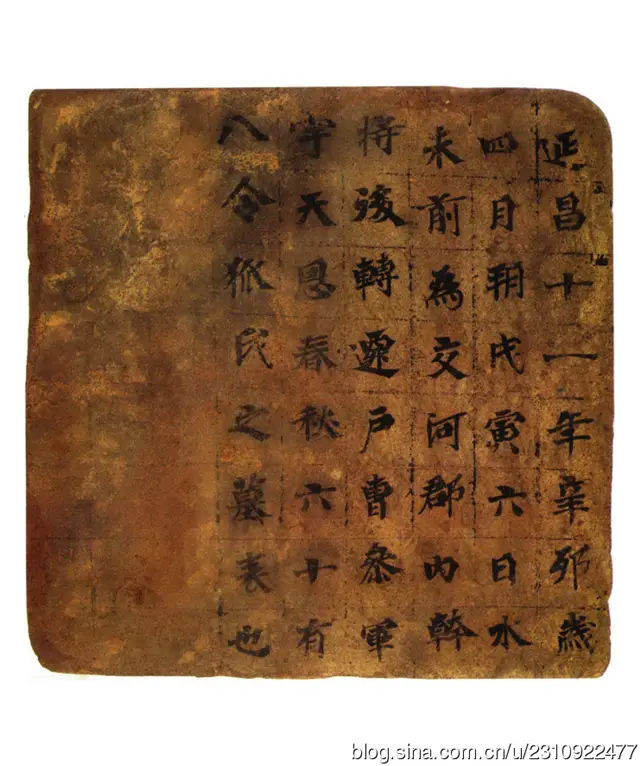 延昌十一年辛卯歲
四月朔戊寅六日水
未前為交河郡內幹
將後轉遷戶曹叅軍
字天恩春秋六十有
八令狐氏之墓表也
blog.sina.com.cn/u/2310922477